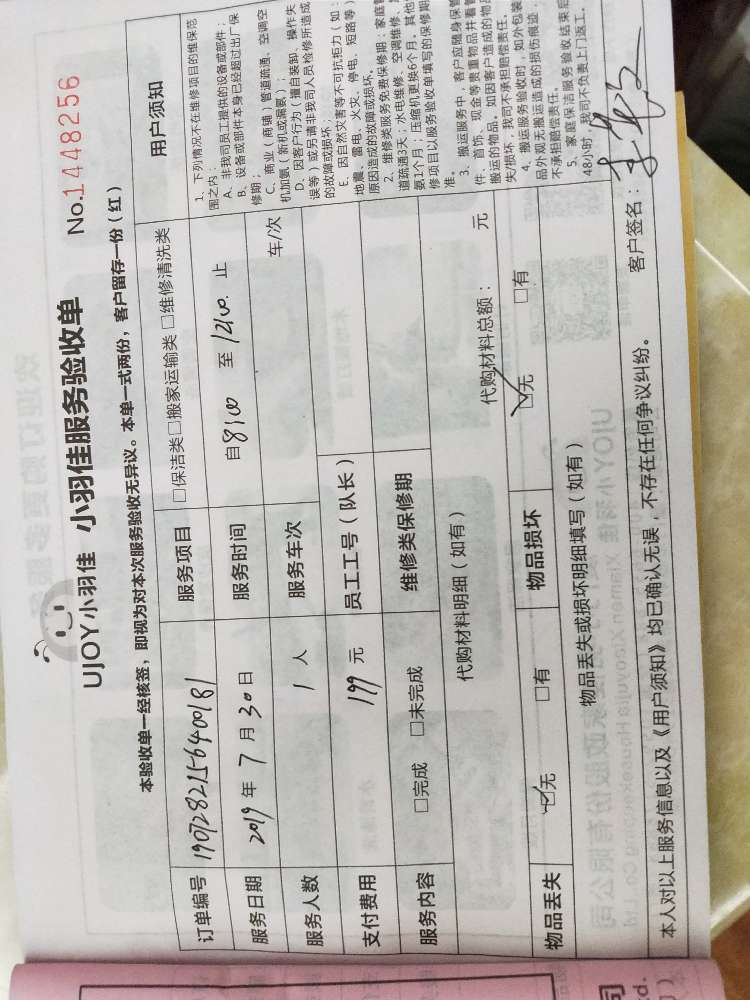 UJOY小羽佳 小羽佳服务验收单 No.1448256
本验收单一经核签，即视为对本次服务验收无异议。本单一式两份，客户留存一份（红）
订单编号 19072821156400181 服务项目 □保洁类□搬家运输类 □维修清洗类
服务日期 2019 年 7 月 30 日 服务时间 自8:00 至 12:00. 止
服务人数 1 人 服务车次 车/次
支付费用 199 元 员工工号（队长）
服务内容 □完成 □未完成 维修类保修期
代购材料明细（如有） 代购材料总额： 元
物品丢失 ☑无 □有 物品损坏 ☑无 □有
物品丢失或损坏明细填写（如有）
用户须知
1、下列情况不在维修项目的维保范
围之内：
A、非我司员工提供的设备或部件；
B、设备或部件本身已经超过出厂保
修期；
C、商业（商铺）管道疏通、空调空
机加氨（新机或漏氨）；
D、因客户行为（擅自装卸、操作失
误等）或另请非我司人员检修所造成
的故障或损坏；
E、因自然灾害等不可抗拒力（如：
地震、雷电、火灾、停电、短路等）
原因造成的故障或损坏。
2、维修类服务免费保修期：家庭管
道疏通3天；水电维修、空调维修、
氨1个月；压缩机更换6个月。其他
修项目以服务验收单填写的保修期
准。
3、搬运服务中，客户应随身保管
件、首饰、现金等贵重物品并看管
搬运的物品。如因客户造成的物品
失/损坏，我司不承担赔偿责任。
4、搬运服务验收时，如外包装
品外观无搬运造成的损伤痕迹，
不承担赔偿责任。
5、家庭保洁服务验收结束后
48小时，我司不负责上门返工。
本人对以上服务信息以及《用户须知》均已确认无误，不存在任何争议纠纷。 客户签名：
司
td.